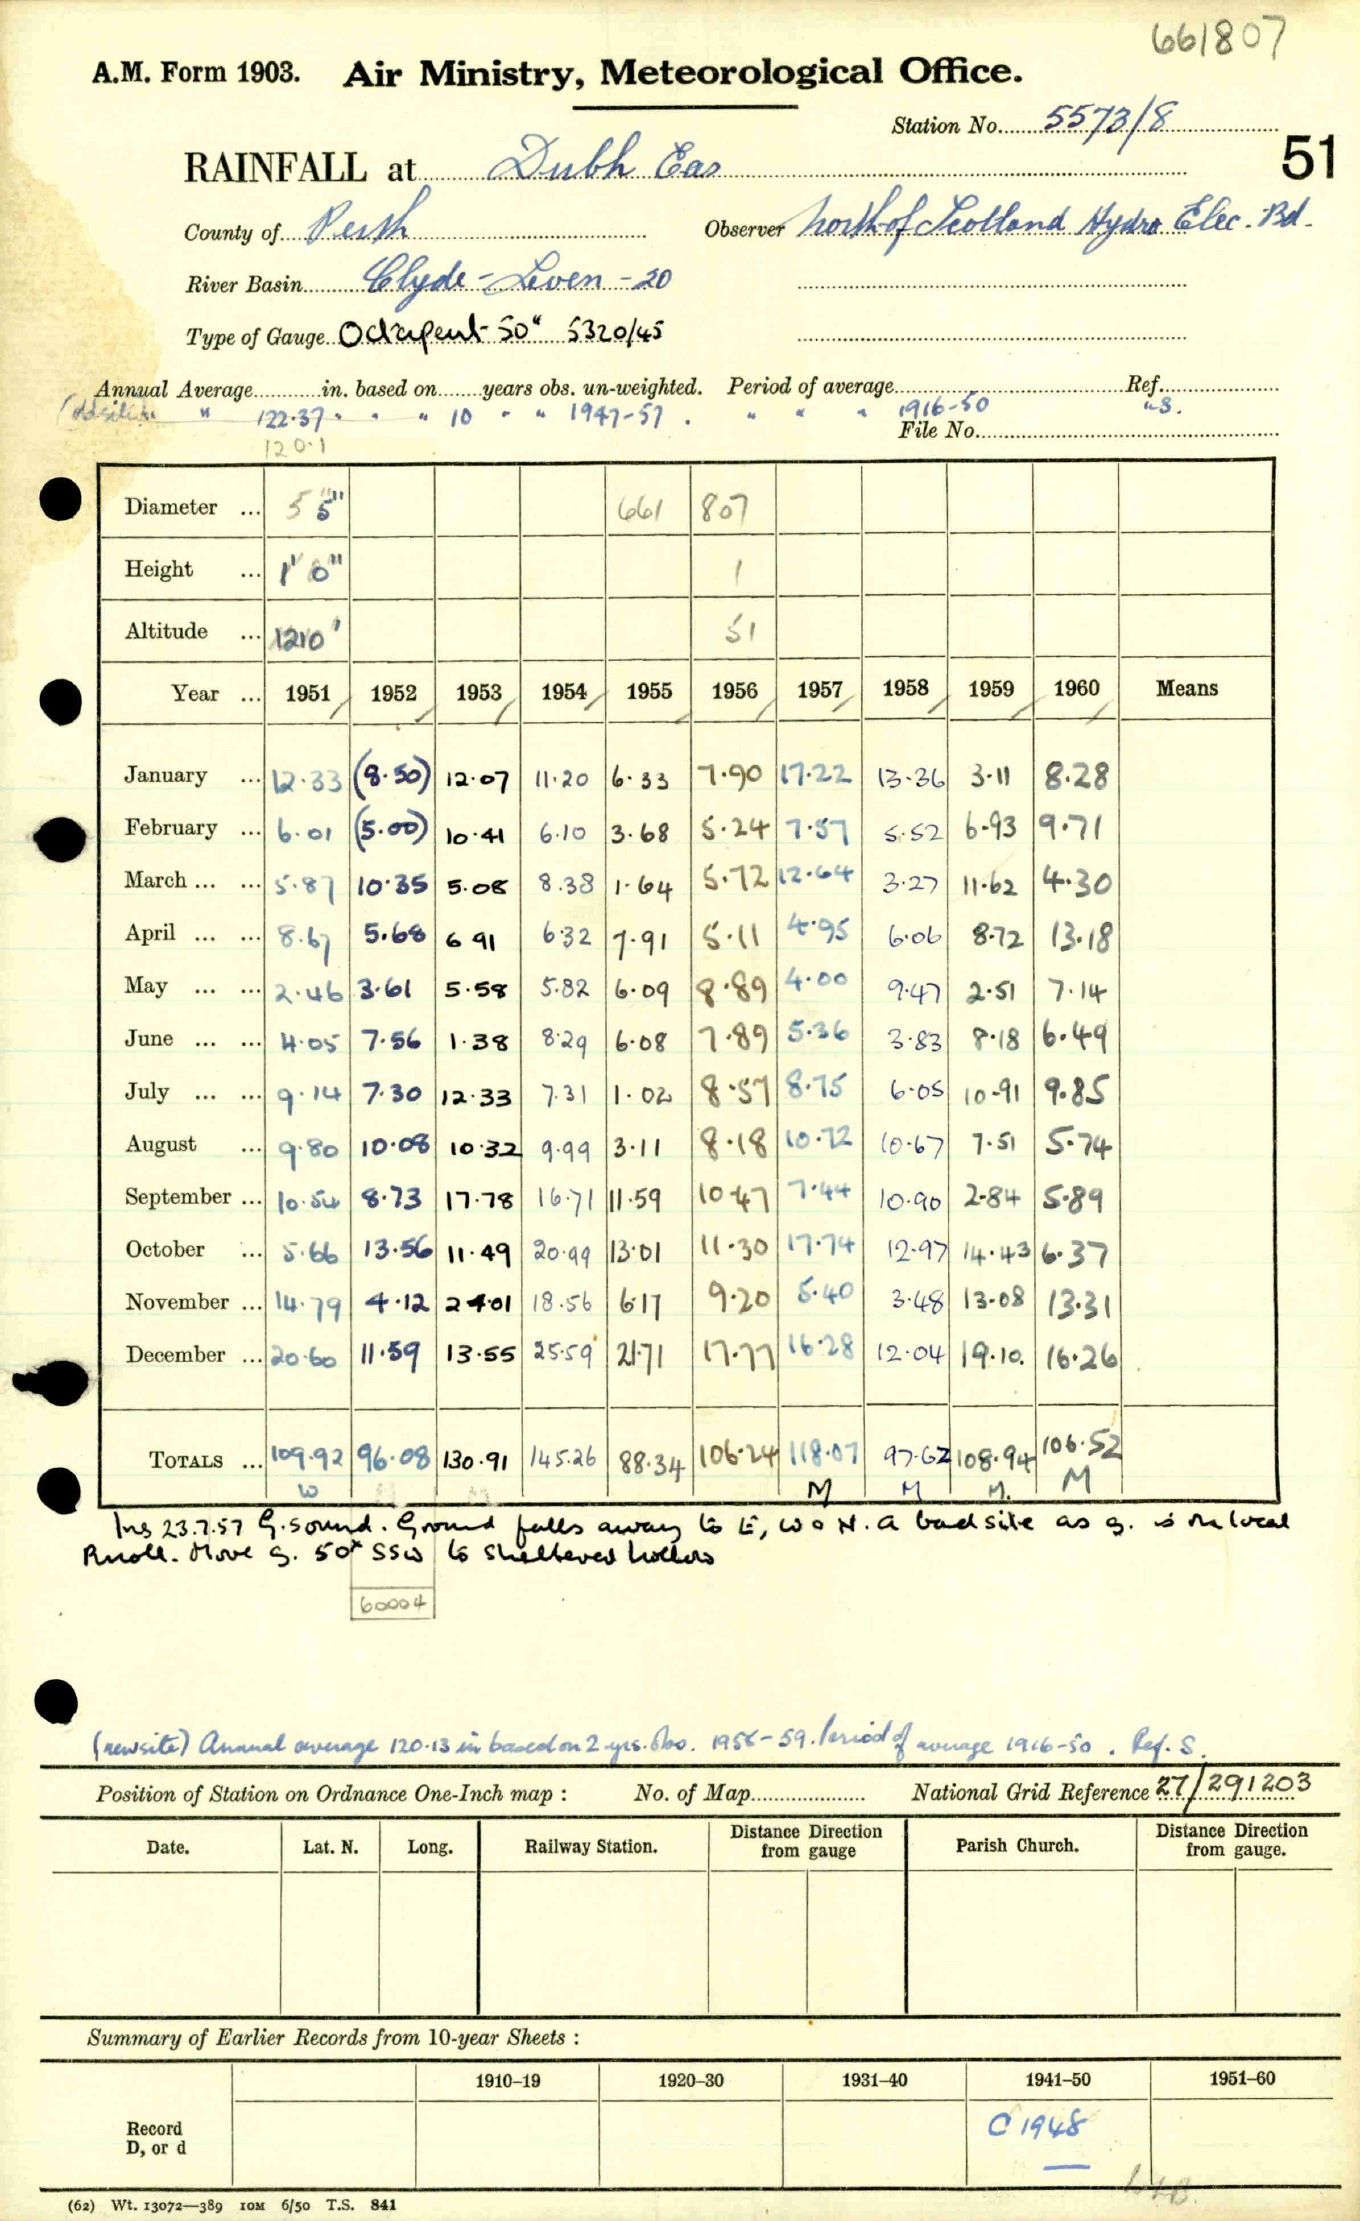 661807
A.M. Form 1903. Air Ministry, Meteorological Office.
Station No. 5573/8
51
RAINFALL at Dubh Eas
County of Perth Observer North of Scotland Hydro Elec. Bd.
River Basin Clyde - Leven - 20
Type of Gauge Octapent 50" 5320/45
Annual Average in. based on years obs. un-weighted. Period of average Ref.
(old site) " 122.37 " " " 10 " " 1947-57. " " " 1916-50 "S.
File No.
120.1
Diameter ... 5 5" 661 807
Height ... 1' 0" 1
Altitude ... 1210' 51
Year ... 1951 1952 1953 1954 1955 1956 1957 1958 1959 1960 Means
January ... 12.33 (8.50) 12.07 11.20 6.33 7.90 17.22 13.36 3.11 8.28
February ... 6.01 (5.00) 10.41 6.10 3.68 5.24 7.57 5.52 6.93 9.71
March ... ... 5.87 10.35 5.08 8.38 1.64 5.72 12.64 3.27 11.62 4.30
April ... ... 8.67 5.68 6 91 6.32 7.91 5.11 4.95 6.06 8.72 13.18
May ... ... 2.46 3.61 5.58 5.82 6.09 8.89 4.00 9.47 2.51 7.14
June ... ... 4.05 7.56 1.38 8.29 6.08 7.89 5.36 3.83 8.18 6.49
July ... ... 9.14 7.30 12.33 7.31 1.02 8.57 8.75 6.05 10.91 9.85
August ... 9.80 10.08 10.32 9.99 3.11 8.18 10.72 10.67 7.51 5.74
September ... 10.54 8.73 17.78 16.71 11.59 10.47 7.44 10.90 2.84 5.89
October ... 5.66 13.56 11.49 20.99 13.01 11.30 17.74 12.97 14.43 6.37
November ... 14.79 4.12 24.01 18.56 6.17 9.20 5.40 3.48 13.08 13.31
December ... 20.60 11.59 13.55 25.59 21.71 17.77 16.28 12.04 19.10. 16.26
TOTALS ... 109.92 96.08 130.91 145.26 88.34 106.24 118.07 97.62 108.94 106.52
W M M M. M
Ins 23.7.57 G. sound. Ground falls away to E, W & N. A bad site as g. is on local
knoll. Move g. 50x SSW to sheltered hollow
60004
(new site) Annual average 120.13 in based on 2 yrs. obs. 1958-59. Period of average 1916-50. Ref. S.
Position of Station on Ordnance One-Inch map : No. of Map National Grid Reference 27/291203
Date. Lat. N. Long. Railway Station. Distance from Direction gauge Parish Church. Distance from Direction gauge.
Summary of Earlier Records from 10-year Sheets :
1910–19 1920–30 1931–40 1941–50 1951–60
Record D, or d C 1948
(62) Wt. 13072—389 10M 6/50 T.S. 841